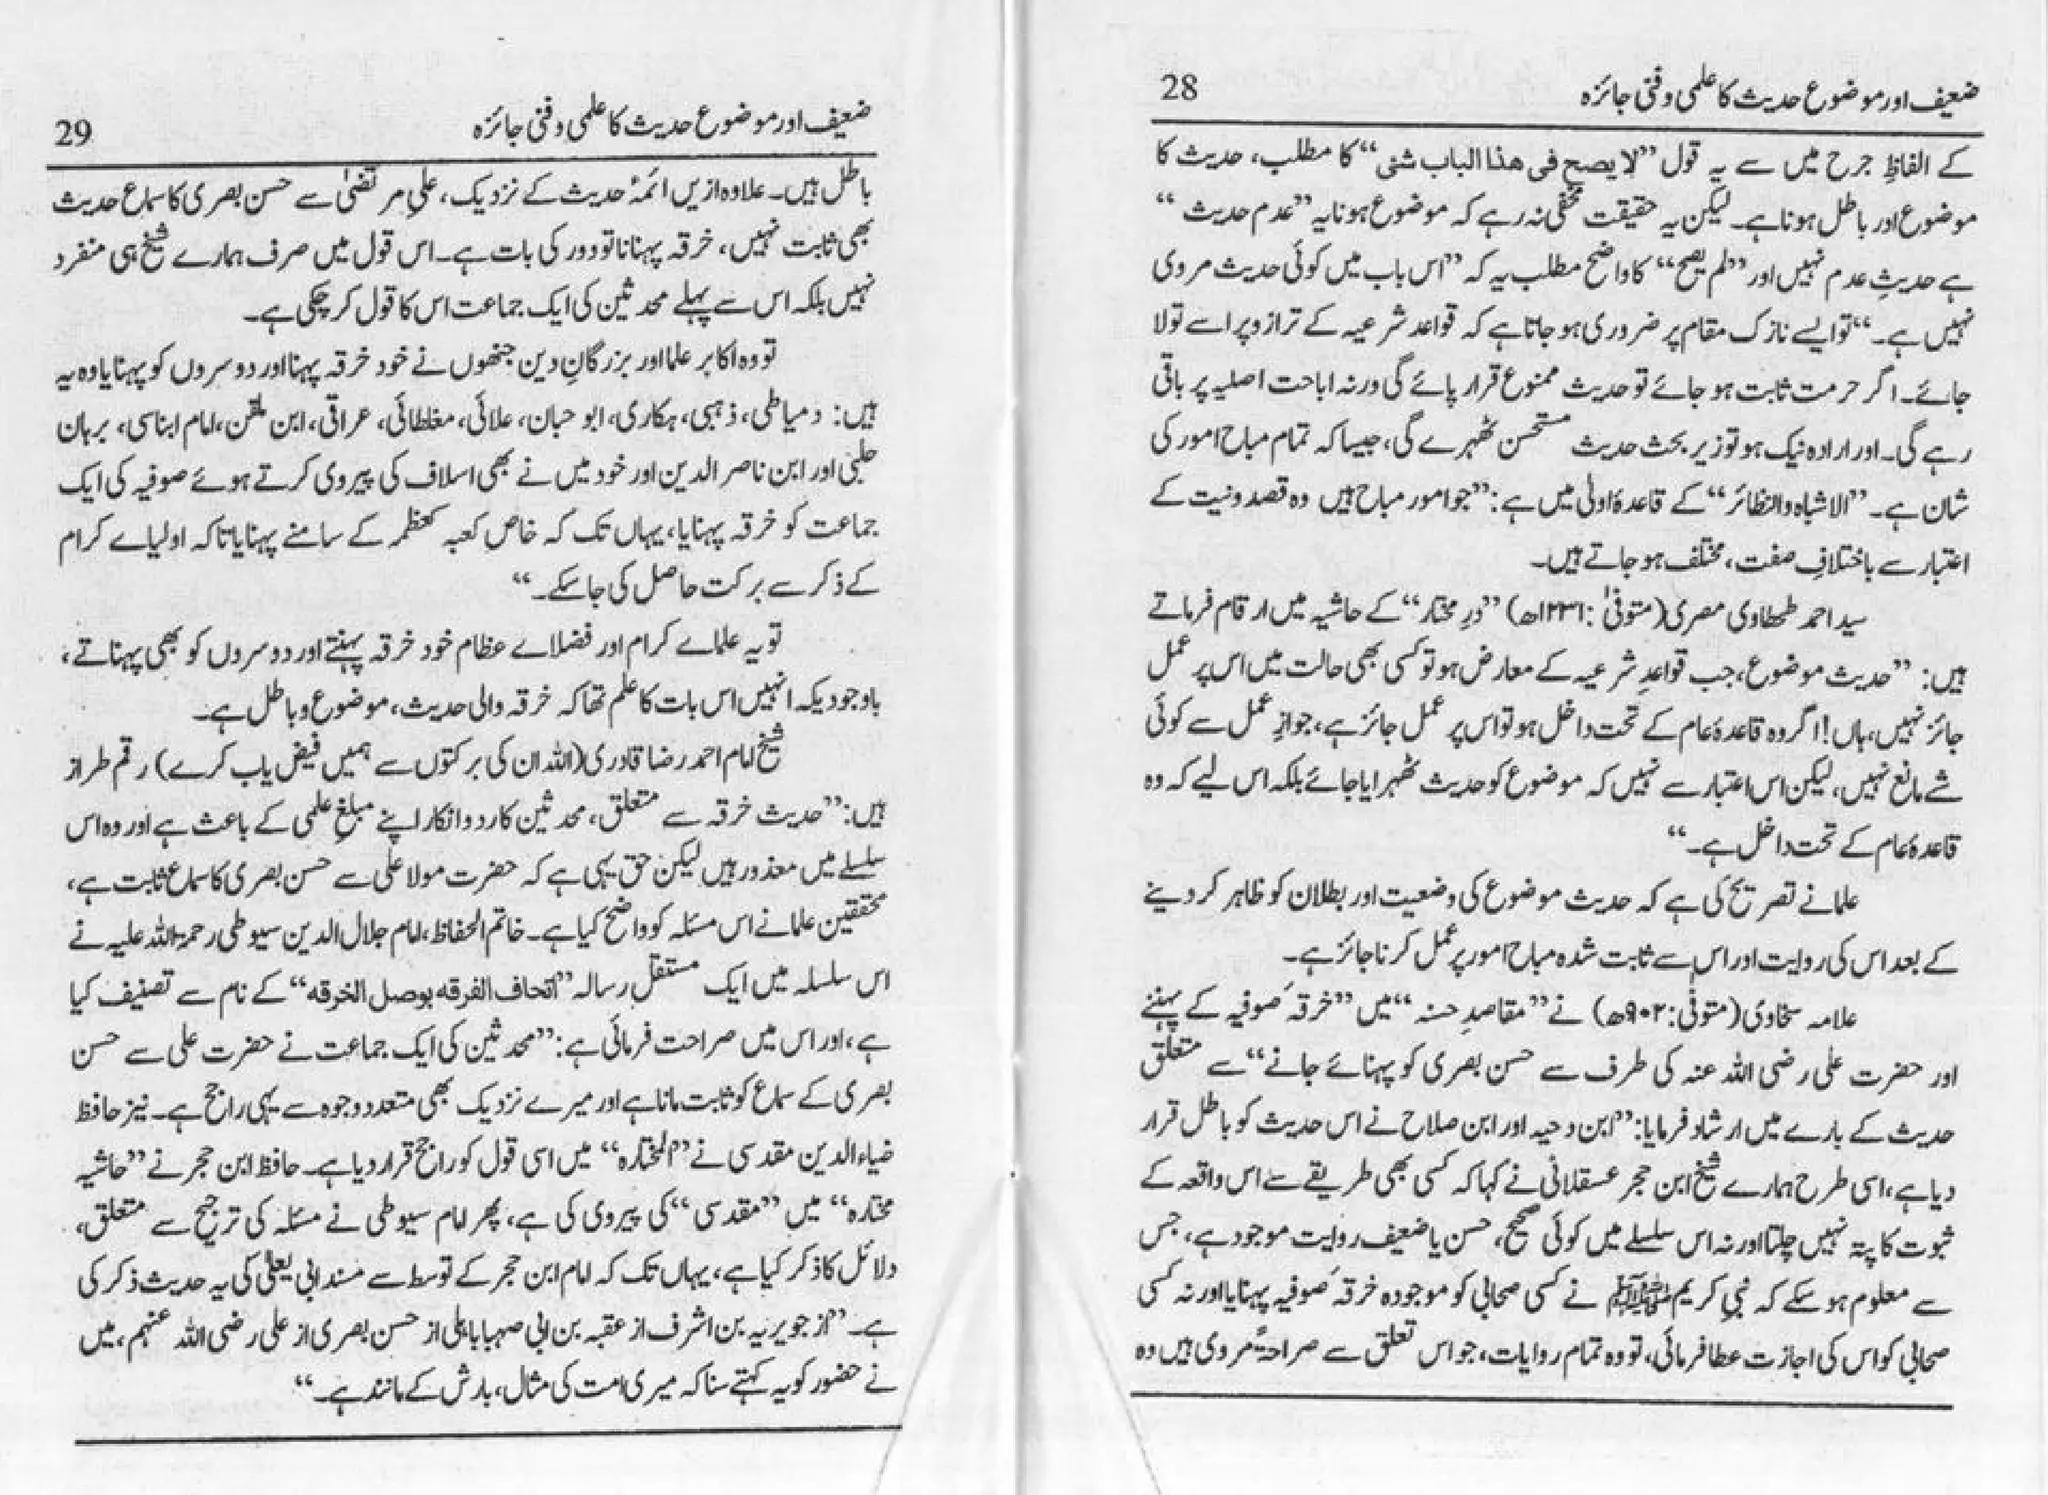 ضعیف اور موضوع حدیث کا علمی و فنی جائزہ 28
کے الفاظِ جرح میں سے یہ قول ”لا یصح فی ھذا الباب شئی“ کا مطلب، حدیث کا
موضوع اور باطل ہونا ہے۔ لیکن یہ حقیقت مخفی نہ رہے کہ موضوع ہونا یہ ”عدم حدیث“
ہے حدیثِ عدم نہیں اور ”لم یصح“ کا واضح مطلب یہ کہ ”اس باب میں کوئی حدیث مروی
نہیں ہے۔“ تو ایسے نازک مقام پر ضروری ہو جاتا ہے کہ قواعد شرعیہ کے ترازو پر اسے تولا
جائے۔ اگر حرمت ثابت ہو جائے تو حدیث ممنوع قرار پائے گی ورنہ اباحت اصلیہ پر باقی
رہے گی۔ اور ارادہ نیک ہو تو زیر بحث حدیث مستحسن ٹھہرے گی، جیسا کہ تمام مباح امور کی
شان ہے۔ ”الاشباہ والنظائر“ کے قاعدۂ اولیٰ میں ہے: ”جو امور مباح ہیں وہ قصد و نیت کے
اعتبار سے باختلافِ صفت، مختلف ہو جاتے ہیں۔
سید احمد طحطاوی مصری (متوفیٰ: ۱۲۳۱ھ) ”درِ مختار“ کے حاشیہ میں ارقام فرماتے
ہیں: ”حدیث موضوع، جب قواعدِ شرعیہ کے معارض ہو تو کسی بھی حالت میں اس پر عمل
جائز نہیں، ہاں! اگر وہ قاعدۂ عام کے تحت داخل ہو تو اس پر عمل جائز ہے، جوازِ عمل سے کوئی
شے مانع نہیں، لیکن اس اعتبار سے نہیں کہ موضوع کو حدیث ٹھہرایا جائے بلکہ اس لیے کہ وہ
قاعدۂ عام کے تحت داخل ہے۔“
علما نے تصریح کی ہے کہ حدیث موضوع کی وضعیت اور بطلان کو ظاہر کر دینے
کے بعد اس کی روایت اور اس سے ثابت شدہ مباح امور پر عمل کرنا جائز ہے۔
علامہ سخاوی (متوفیٰ: ۹۰۲ھ) نے ”مقاصدِ حسنہ“ میں ”خرقۂ صوفیہ کے پہننے
اور حضرت علی رضی اللہ عنہ کی طرف سے حسن بصری کو پہنائے جانے“ سے متعلق
حدیث کے بارے میں ارشاد فرمایا: ”ابن دحیہ اور ابن صلاح نے اس حدیث کو باطل قرار
دیا ہے، اسی طرح ہمارے شیخ ابن حجر عسقلانی نے کہا کہ کسی بھی طریقے سے اس واقعہ کے
ثبوت کا پتہ نہیں چلتا اور نہ اس سلسلے میں کوئی صحیح، حسن یا ضعیف روایت موجود ہے، جس
سے معلوم ہو سکے کہ نبیِ کریم ﷺ نے کسی صحابی کو موجودہ خرقۂ صوفیہ پہنایا اور نہ کسی
صحابی کو اس کی اجازت عطا فرمائی، تو وہ تمام روایات، جو اس تعلق سے صراحۃً مروی ہیں وہ
ضعیف اور موضوع حدیث کا علمی و فنی جائزہ 29
باطل ہیں۔ علاوہ ازیں ائمۂ حدیث کے نزدیک، علیِ مرتضیٰ سے حسن بصری کا سماع حدیث
بھی ثابت نہیں، خرقہ پہنانا تو دور کی بات ہے۔ اس قول میں صرف ہمارے شیخ ہی منفرد
نہیں بلکہ اس سے پہلے محدثین کی ایک جماعت اس کا قول کر چکی ہے۔
تو وہ اکابر علما اور بزرگانِ دین جنھوں نے خود خرقہ پہنا اور دوسروں کو پہنایا وہ یہ
ہیں: دمیاطی، ذہبی، ہکاری، ابو حبان، علائی، مغلطائی، عراقی، ابن ملقن، امام ابناسی، برہان
حلبی اور ابن ناصر الدین اور خود میں نے بھی اسلاف کی پیروی کرتے ہوئے صوفیہ کی ایک
جماعت کو خرقہ پہنایا، یہاں تک کہ خاص کعبہ معظمہ کے سامنے پہنایا تاکہ اولیاے کرام
کے ذکر سے برکت حاصل کی جا سکے۔“
تو یہ علماے کرام اور فضلاے عظام خود خرقہ پہنتے اور دوسروں کو بھی پہناتے،
باوجودیکہ انہیں اس بات کا علم تھا کہ خرقہ والی حدیث، موضوع و باطل ہے۔
شیخ امام احمد رضا قادری (اللہ ان کی برکتوں سے ہمیں فیض یاب کرے) رقم طراز
ہیں: ”حدیث خرقہ سے متعلق، محدثین کا رد و انکار اپنے مبلغِ علمی کے باعث ہے اور وہ اس
سلسلے میں معذور ہیں لیکن حق یہی ہے کہ حضرت مولا علی سے حسن بصری کا سماع ثابت ہے،
محققین علما نے اس مسئلہ کو واضح کیا ہے۔ خاتم الحفاظ، امام جلال الدین سیوطی رحمۃ اللہ علیہ نے
اس سلسلہ میں ایک مستقل رسالہ ”اتحاف الفرقه بوصل الخرقه“ کے نام سے تصنیف کیا
ہے، اور اس میں صراحت فرمائی ہے: ”محدثین کی ایک جماعت نے حضرت علی سے حسن
بصری کے سماع کو ثابت مانا ہے اور میرے نزدیک بھی متعدد وجوہ سے یہی راجح ہے۔ نیز حافظ
ضیاء الدین مقدسی نے ”المختارہ“ میں اسی قول کو راجح قرار دیا ہے۔ حافظ ابن حجر نے ”حاشیہ
مختارہ“ میں ”مقدسی“ کی پیروی کی ہے، پھر امام سیوطی نے مسئلہ کی ترجیح سے متعلق،
دلائل کا ذکر کیا ہے، یہاں تک کہ امام ابن حجر کے توسط سے مسند ابی یعلیٰ کی یہ حدیث ذکر کی
ہے۔ ”از جویریہ بن اشرف از عقبہ بن ابی صہبا باہلی از حسن بصری از علی رضی اللہ عنہم، میں
نے حضور کو یہ کہتے سنا کہ میری امت کی مثال، بارش کے مانند ہے۔“